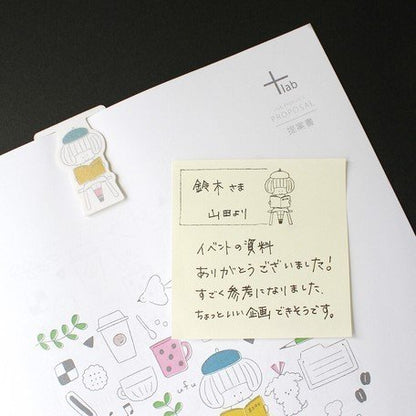 +lab
PROPOSAL
提案書
鈴木さま
山田より
イベントの資料
ありがとうございました!
すごく参考になりました.
ちょっといい企画できそうです。
ufu